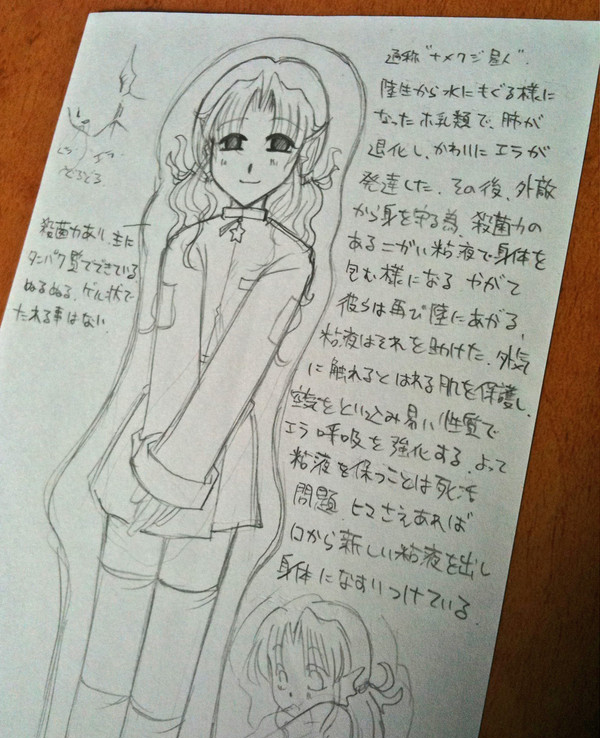 通称"ナメクジ星人".
陸生から水にもぐる様に
なったホ乳類で、肺が
退化し、かわりに エラが
発達した. その後、外敵
から身を守る為、殺菌力の
ある にがい粘液で身体を
包む様になる やがて
彼らは再び陸にあがる.
粘液はそれを助けた. 外気
に触れるとはれる肌を保護し、
空気をとり込み易い性質で
エラ呼吸を強化する. よって
粘液を保つことは死活
問題. ヒマさえあれば
口から新しい粘液を出し
身体になすりつけている.
殺菌力あり. 主に
タンパク質でできている
ぬるぬる. ゲル状で
たれる事はない.
どろどろ